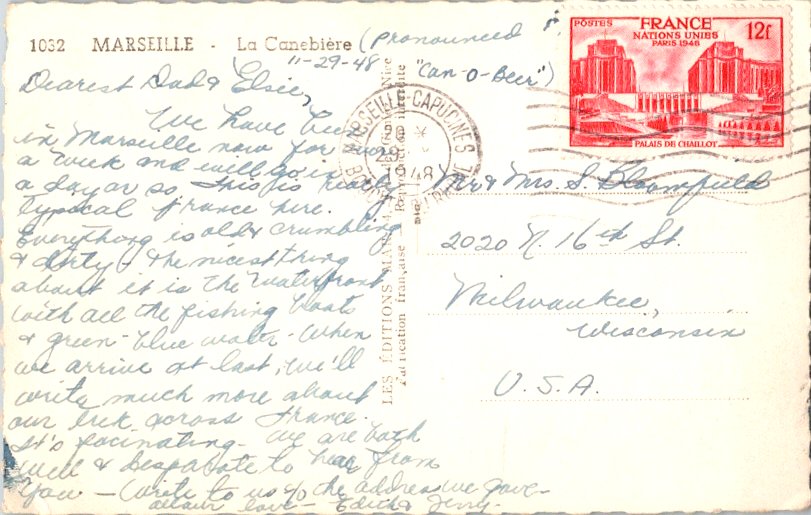 1032 MARSEILLE - La Canebière (pronounced
"Can-O-Beer")
11-29-48
POSTES FRANCE 12f
NATIONS UNIES
PARIS 1948
PALAIS DE CHAILLOT
MARSEILLE-CAPUCINES
1948
Dearest Dad & Elsie,
We have been
in Marseille now for over
a week and will go in
a day or so. This is really
typical France here.
Everything is old & crumbling
& dirty & the nicest thing
about it is the waterfront
with all the fishing boats
& green-blue water. When
we arrive at last, we'll
write much more about
our trek across France.
It's facinating. We are both
well & desparate to hear from
you - Write to us c/o the address we gave-
all our love - Edith & Jerry.
LES ÉDITIONS MAR
Fabrication française
interdite
Mr & Mrs. S. Bloomfield
2020 N. 16th St.
Milwaukee,
Wisconsin
U.S.A.